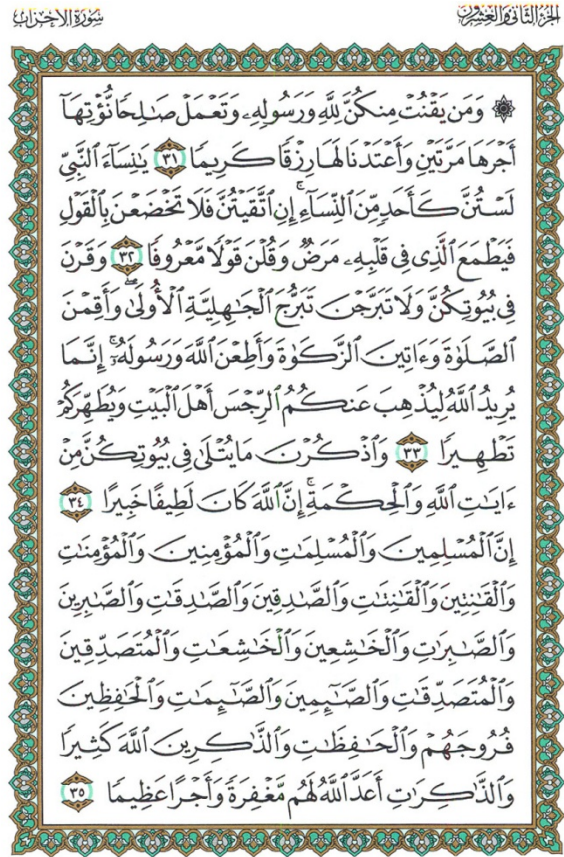 الجزء الثاني والعشرون
سورة الأحزاب
۞ وَمَن يَقْنُتْ مِنكُنَّ لِلَّهِ وَرَسُولِهِۦ وَتَعْمَلْ صَٰلِحًا نُّؤْتِهَآ
أَجْرَهَا مَرَّتَيْنِ وَأَعْتَدْنَا لَهَا رِزْقًا كَرِيمًا ٣١ يَٰنِسَآءَ ٱلنَّبِيِّ
لَسْتُنَّ كَأَحَدٍ مِّنَ ٱلنِّسَآءِ ۚ إِنِ ٱتَّقَيْتُنَّ فَلَا تَخْضَعْنَ بِٱلْقَوْلِ
فَيَطْمَعَ ٱلَّذِى فِى قَلْبِهِۦ مَرَضٌ وَقُلْنَ قَوْلًا مَّعْرُوفًا ٣٢ وَقَرْنَ
فِى بُيُوتِكُنَّ وَلَا تَبَرَّجْنَ تَبَرُّجَ ٱلْجَٰهِلِيَّةِ ٱلْأُولَىٰ ۖ وَأَقِمْنَ
ٱلصَّلَوٰةَ وَءَاتِينَ ٱلزَّكَوٰةَ وَأَطِعْنَ ٱللَّهَ وَرَسُولَهُۥٓ ۚ إِنَّمَا
يُرِيدُ ٱللَّهُ لِيُذْهِبَ عَنكُمُ ٱلرِّجْسَ أَهْلَ ٱلْبَيْتِ وَيُطَهِّرَكُمْ
تَطْهِيرًا ٣٣ وَٱذْكُرْنَ مَا يُتْلَىٰ فِى بُيُوتِكُنَّ مِنْ
ءَايَٰتِ ٱللَّهِ وَٱلْحِكْمَةِ ۚ إِنَّ ٱللَّهَ كَانَ لَطِيفًا خَبِيرًا ٣٤
إِنَّ ٱلْمُسْلِمِينَ وَٱلْمُسْلِمَٰتِ وَٱلْمُؤْمِنِينَ وَٱلْمُؤْمِنَٰتِ
وَٱلْقَٰنِتِينَ وَٱلْقَٰنِتَٰتِ وَٱلصَّٰدِقِينَ وَٱلصَّٰدِقَٰتِ وَٱلصَّٰبِرِينَ
وَٱلصَّٰبِرَٰتِ وَٱلْخَٰشِعِينَ وَٱلْخَٰشِعَٰتِ وَٱلْمُتَصَدِّقِينَ
وَٱلْمُتَصَدِّقَٰتِ وَٱلصَّٰٓئِمِينَ وَٱلصَّٰٓئِمَٰتِ وَٱلْحَٰفِظِينَ
فُرُوجَهُمْ وَٱلْحَٰفِظَٰتِ وَٱلذَّٰكِرِينَ ٱللَّهَ كَثِيرًا
وَٱلذَّٰكِرَٰتِ أَعَدَّ ٱللَّهُ لَهُم مَّغْفِرَةً وَأَجْرًا عَظِيمًا ٣٥